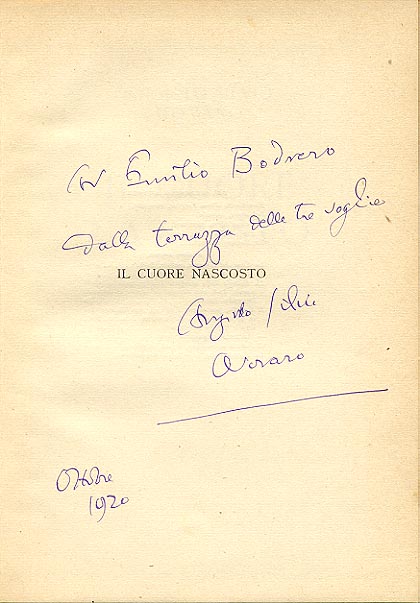 Ad Emilio Bodrero
Dalla terrazza delle tre soglie
IL CUORE NASCOSTO
Angiolo Silvio
Novaro
Ottobre
1920